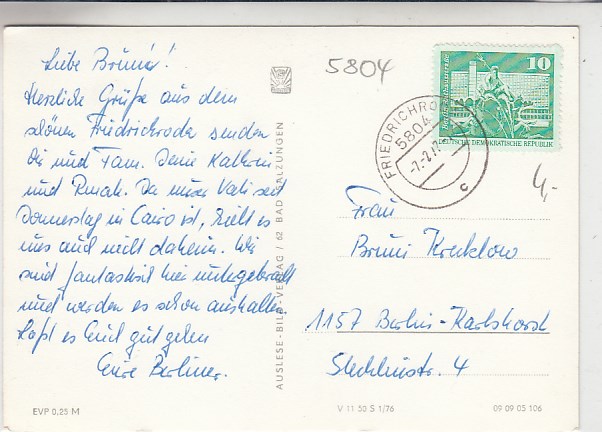 Liebe Bruni!
Herzliche Grüße aus dem
schönen Friedrichroda senden
dir und Fam. Deine
und Da unser Vati seit
Donnerstag in Cairo ist, hielt es
uns auch nicht daheim. Wir
sind fantastisch hier untergebracht
und werden es schon aushalten.
Laßt es Euch gut gehen
Eure Berliner.
EVP 0,25 M
AUSLESE-BILD-VERLAG / 62 BAD SALZUNGEN
5804
10
DEUTSCHE DEMOKRATISCHE REPUBLIK
FRIEDRICHRODA
5804
c
4,-
Frau
Bruni
1157 Berlin-Karlshorst
Stechlinstr. 4
V 11 50 S 1/76
09 09 05 106